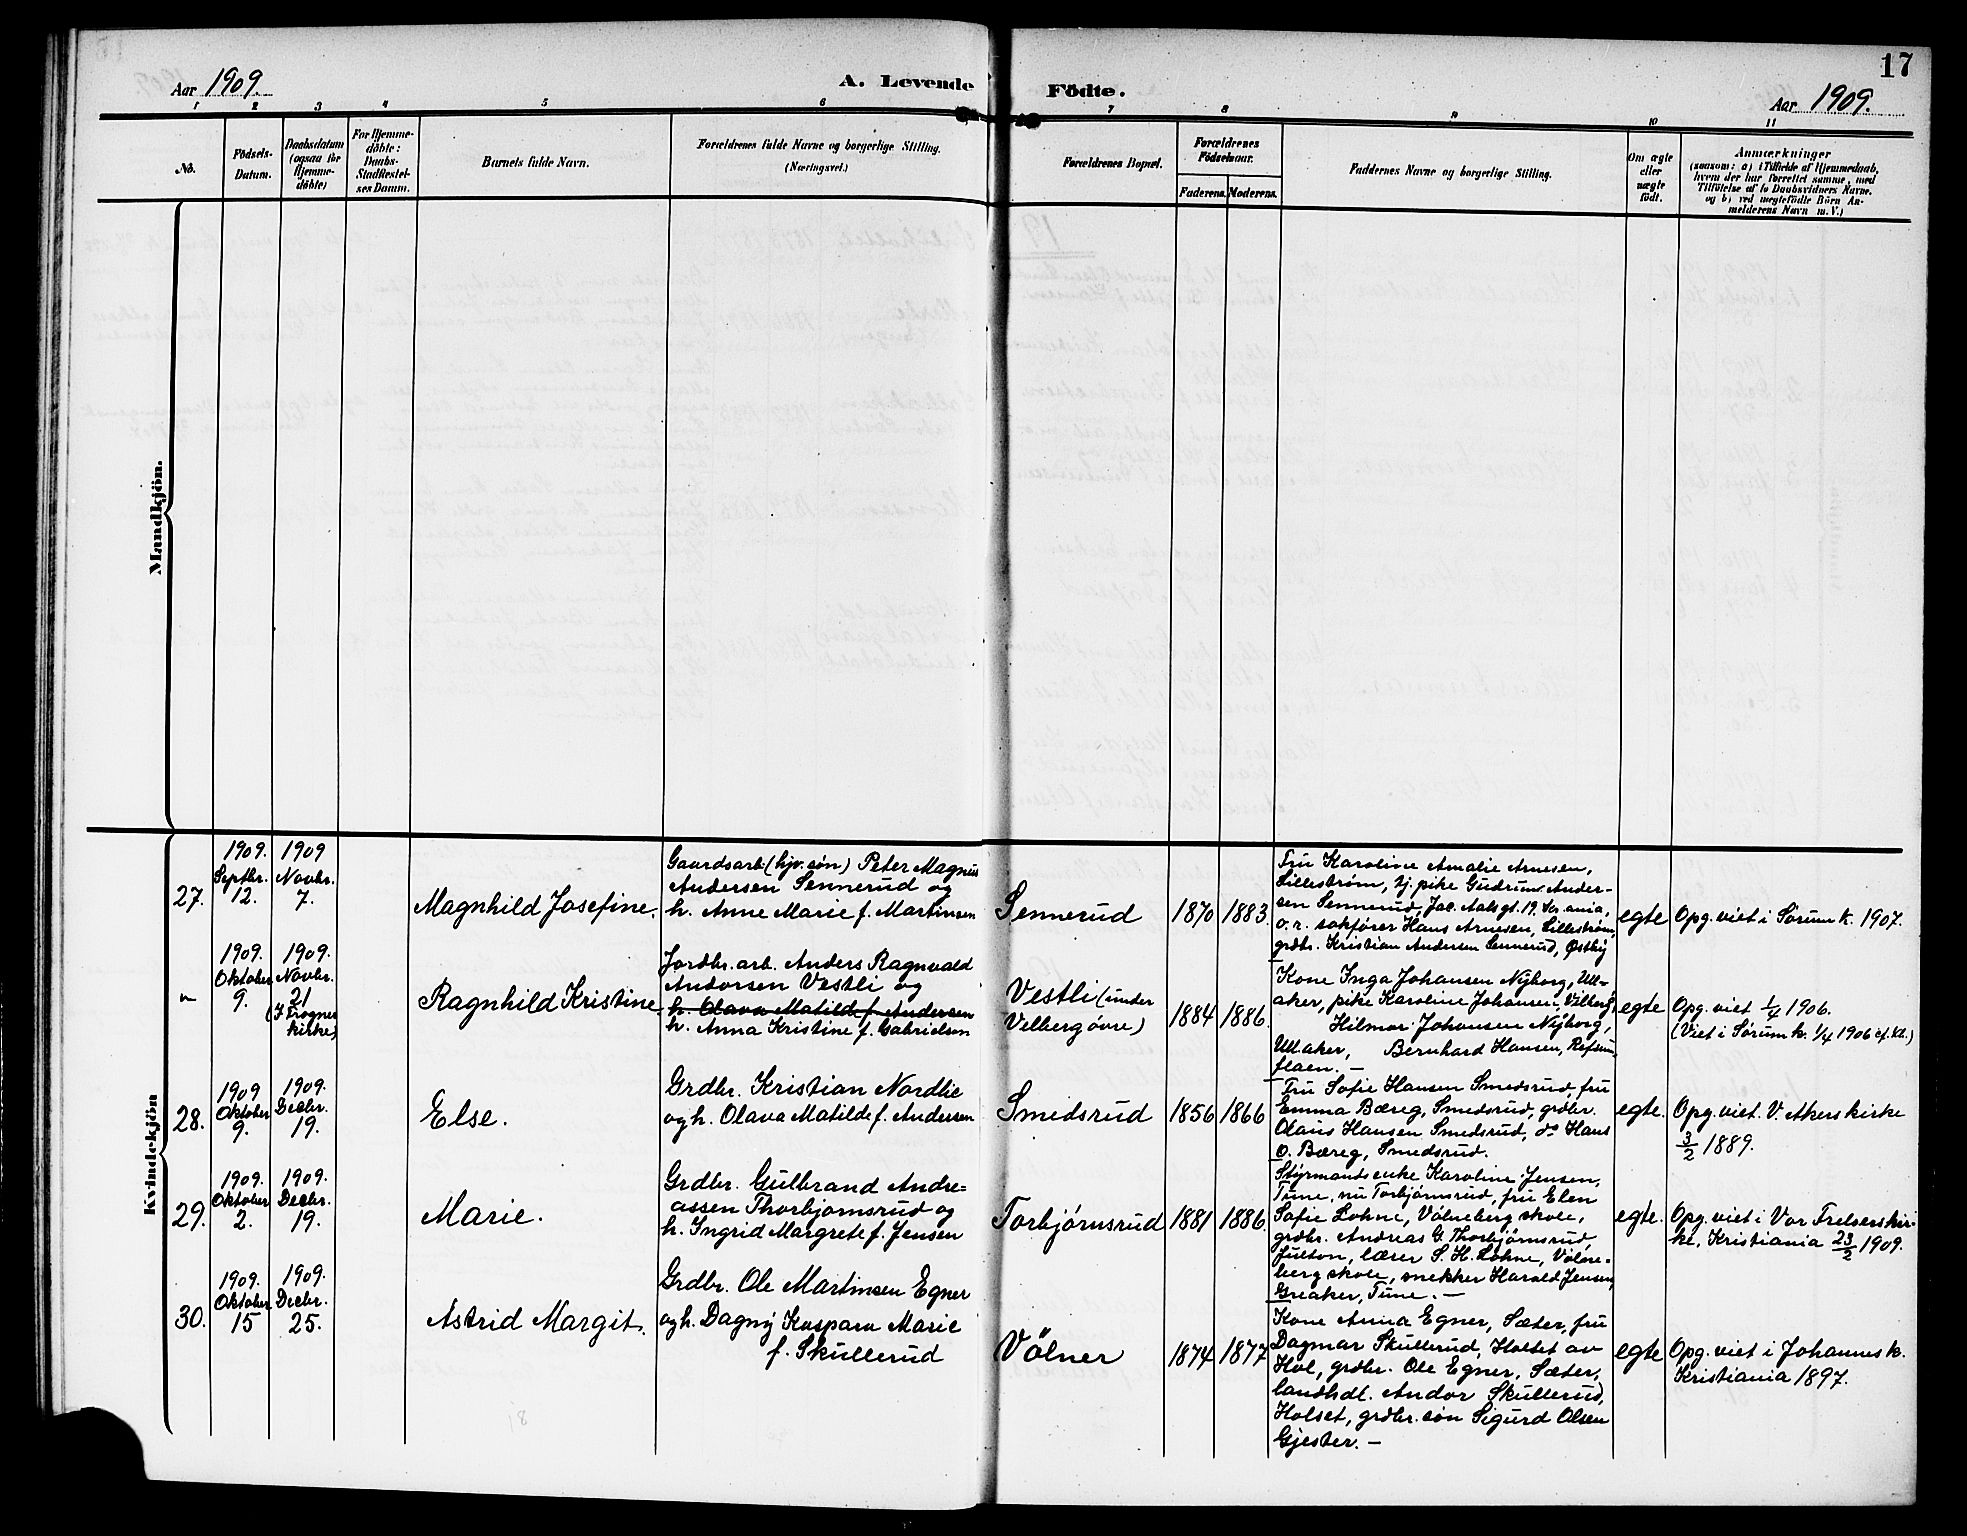 17
Aar 1909.
A. Levende Födte.
Aar 1909.
1 2 3 4 5 6 7 8 9 10 11
No.
Födsels-
Datum.
Daabsdatum
(ogsaa for
Hjemme-
döbte)
For Hjemme-
döbte:
Daabs-
Stadfestel-
ses Datum.
Barnets fulde Navn.
Forældrenes fulde Navne og borgerlige Stilling.
(Næringsvei.)
Forældrenes Bopæl.
Forældrenes
Födselsaar.
Faderens. Moderens.
Faddernes Navne og borgerlige Stilling.
Om ægte
eller
uægte
födt.
Anmærkninger
(saasom: a) i Tilfælde af Hjemmedaab,
hvem der har forrettet samme, med
Tilföielse af to Daabsvidners Navne.
og b) ved uægtefödte Börn An-
melderens Navn m. V.)
Mandkjön.
Kvindekjön
27.
1909.
Septbr.
12.
1909
Novbr.
7.
Magnhild Josefine.
Gaardsarb. (hjv. søn) Peter Magnus
Andersen Sennerud og
h. Anne Marie f. Martinsen
Sennerud
1870 1883.
Fru Karoline Amalie Arnesen,
Lillestrøm, tj. pike Gudrun Ander-
sen Sennerud, Jac. Aalsgt. 19. Kr.ania,
o.r. sakfører Hans Arnesen, Lillestrøm,
grdbr. Kristian Andersen Sennerud, Østby
egte
Opg. viet i Sørum k. 1907.
"
1909.
Oktober
9.
1909.
Novbr.
21
(I Frogner
kirke)
Ragnhild Kristine
Jordbr. arb. Anders Ragnvald
Andersen Vestli og
h. Olava Matilde f. Andersen
h. Anna Kristine f. Gabrielsen
Vestli (under
Velbergøvre)
1884 1886.
Kone Inga Johansen Nyborg, Ull-
aker, pike Karoline Johansen, Vilberg,
Hilmar Johansen Nyborg,
Ullaker, Bernhard Hansen, Refsum
flaen. —
egte
Opg. viet 1/4 1906.
(Viet i Sørum k. 1/4 1906 cf. kl.)
28.
1909
Oktober
9.
1909.
Decbr.
19.
Else.
Grdbr. Kristian Nordlie
og h. Olava Matilde f. Andersen
Smedsrud
1856 1866
Fru Sofie Hansen Smedsrud, fru
Emma Bæreg, Smedsrud, grdbr.
Olaus Hansen Smedsrud, do Hans
O. Bæreg, Smedsrud.
egte.
Opg. viet. V. Akers kirke
3/2 1889.
29.
1909.
Oktober
2.
1909.
Decbr.
19.
Marie.
Grdbr. Gulbrand Andre=
assen Thorbjørnsrud og
h. Ingrid Margrete f. Jensen
Torbjørnsrud
1881 1886.
Styrmandsenke Karoline Jensen,
Tune, nu Torbjørnsrud, fru Elen
Sofie Lohne, Vølneberg skole,
grdbr. Andreas G. Thorbjørnsrud,
lærer S. H. Lohne, Vølne-
berg skole, snekker Harald Jensen,
Greaker, Tune. —
egte.
Opg. viet i Vor Frelsers kir-
ke, Kristiania 23/2 1909.
30.
1909.
Oktober
15
1909.
Decbr.
25.
Astrid Margit.
Grdbr. Ole Martinsen Egner
og h. Dagny Kaspara Marie
f. Skullerud
Völner
1874 1877
Kone Anna Egner, Sæter, fru
Dagmar Skullerud, Holtet av
Hol, grdbr. Ole Egner, Sæter,
landhdl. Andor Skullerud,
Holset, grdbr. søn Sigurd Olsen
Gjester. —
egte
Opg. viet i Johannes k.
Kristiania 1897.